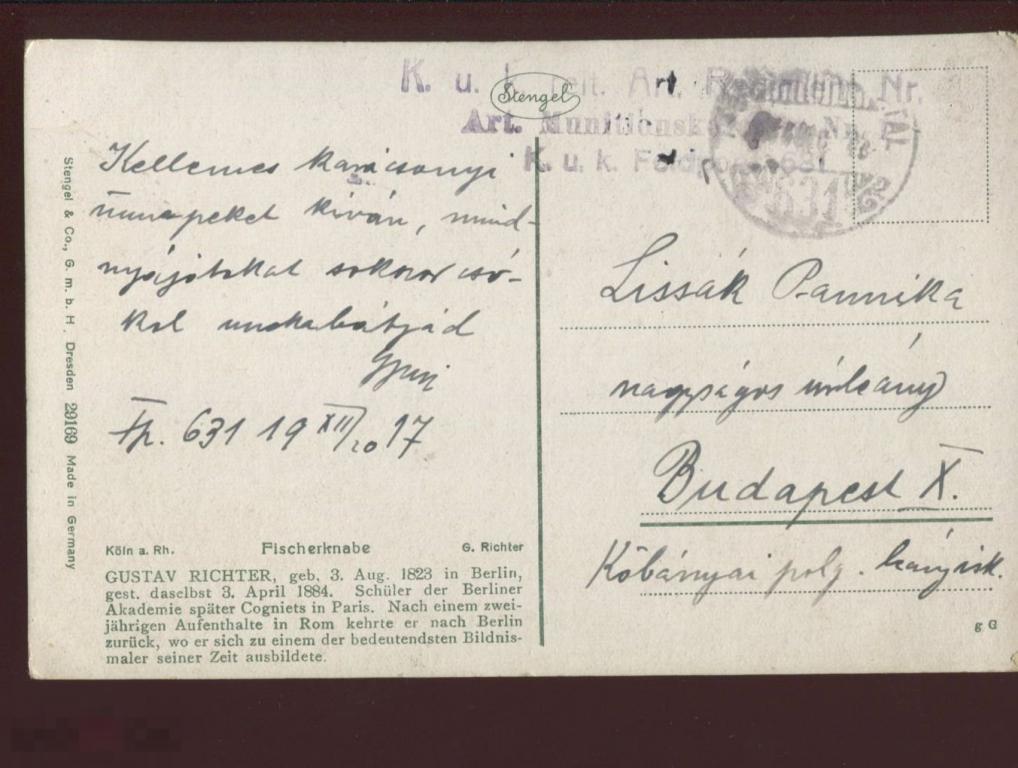 K. u. k. reit. Art. Regiment Nr.
Stengel
Art. Munitionskolonne Nr.
K. u. k. Feldpost 631
631
Kellemes karácsonyi
ünnepeket kíván, mind-
nyájatokat sokszor csó-
kol unokabátyád
Gyuri
Fp. 631 19 XII/20 17
Lissák Pannika
nagyságos úrleány
Budapest X.
Kőbányai polg. leányisk.
Stengel & Co., G. m. b. H. Dresden 29169 Made in Germany
Köln a. Rh. Fischerknabe G. Richter
GUSTAV RICHTER, geb. 3. Aug. 1823 in Berlin,
gest. daselbst 3. April 1884. Schüler der Berliner
Akademie später Cogniets in Paris. Nach einem zwei-
jährigen Aufenthalte in Rom kehrte er nach Berlin
zurück, wo er sich zu einem der bedeutendsten Bildnis-
maler seiner Zeit ausbildete.
g G